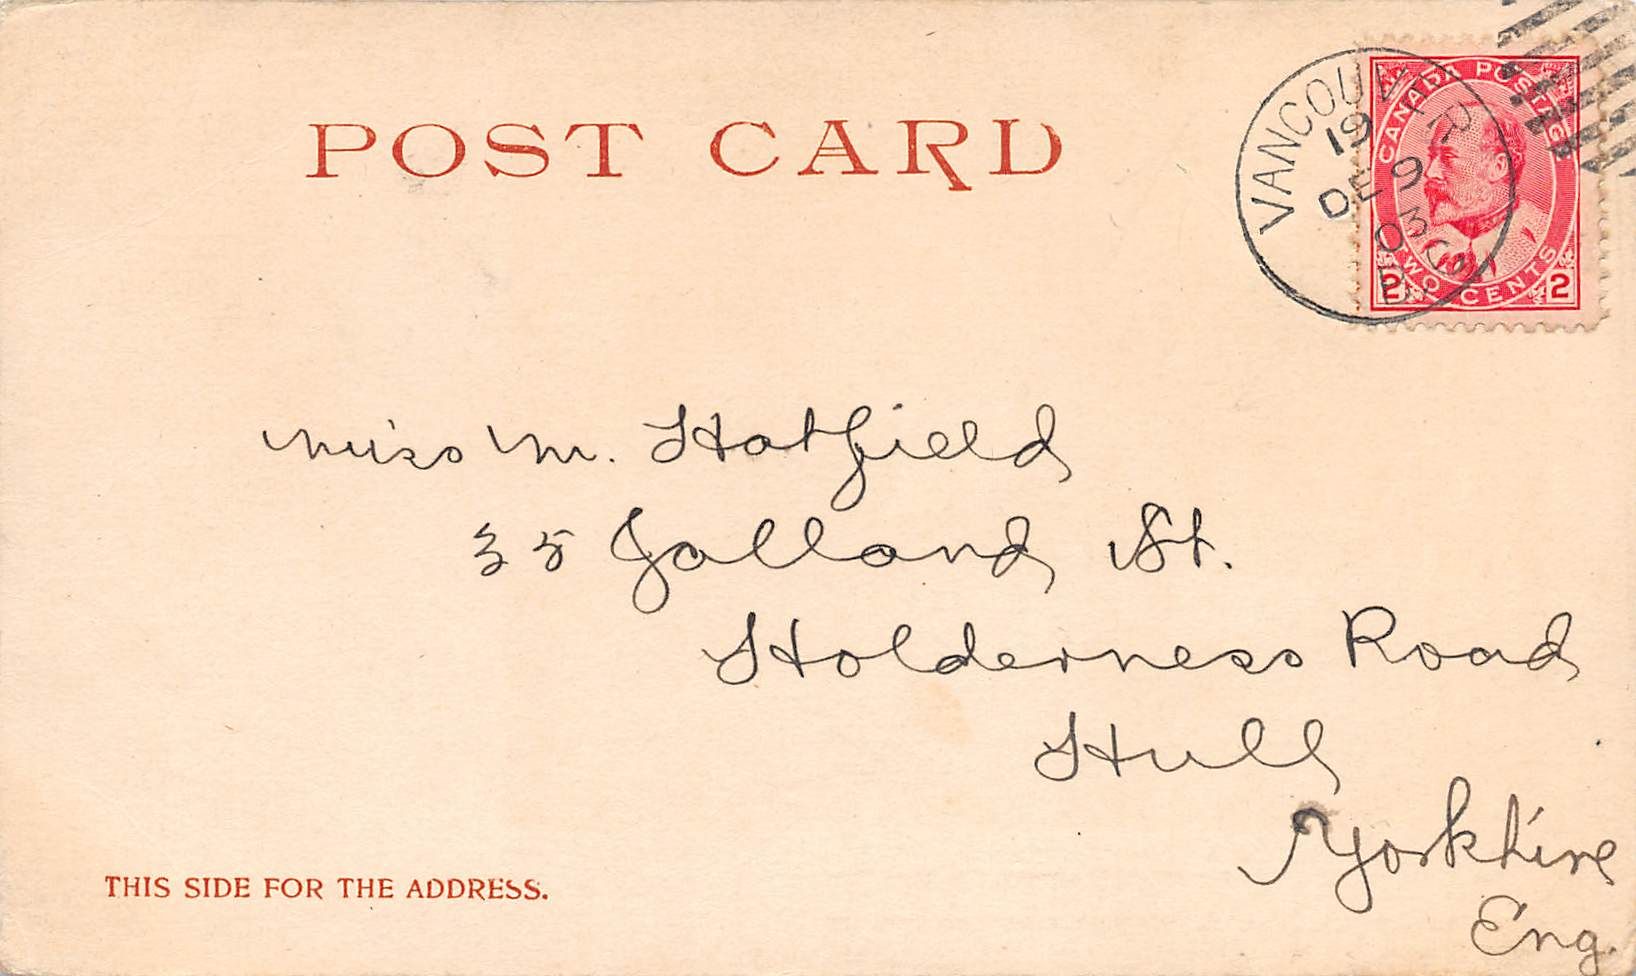 POST CARD
VANCOUVER
19
DE 9
03
B.C.
CANADA POSTAGE
TWO CENTS
2 2
Miss M. Hatfield
35 Jalland St.
Holderness Road
Hull
Yorkhire
Eng.
THIS SIDE FOR THE ADDRESS.